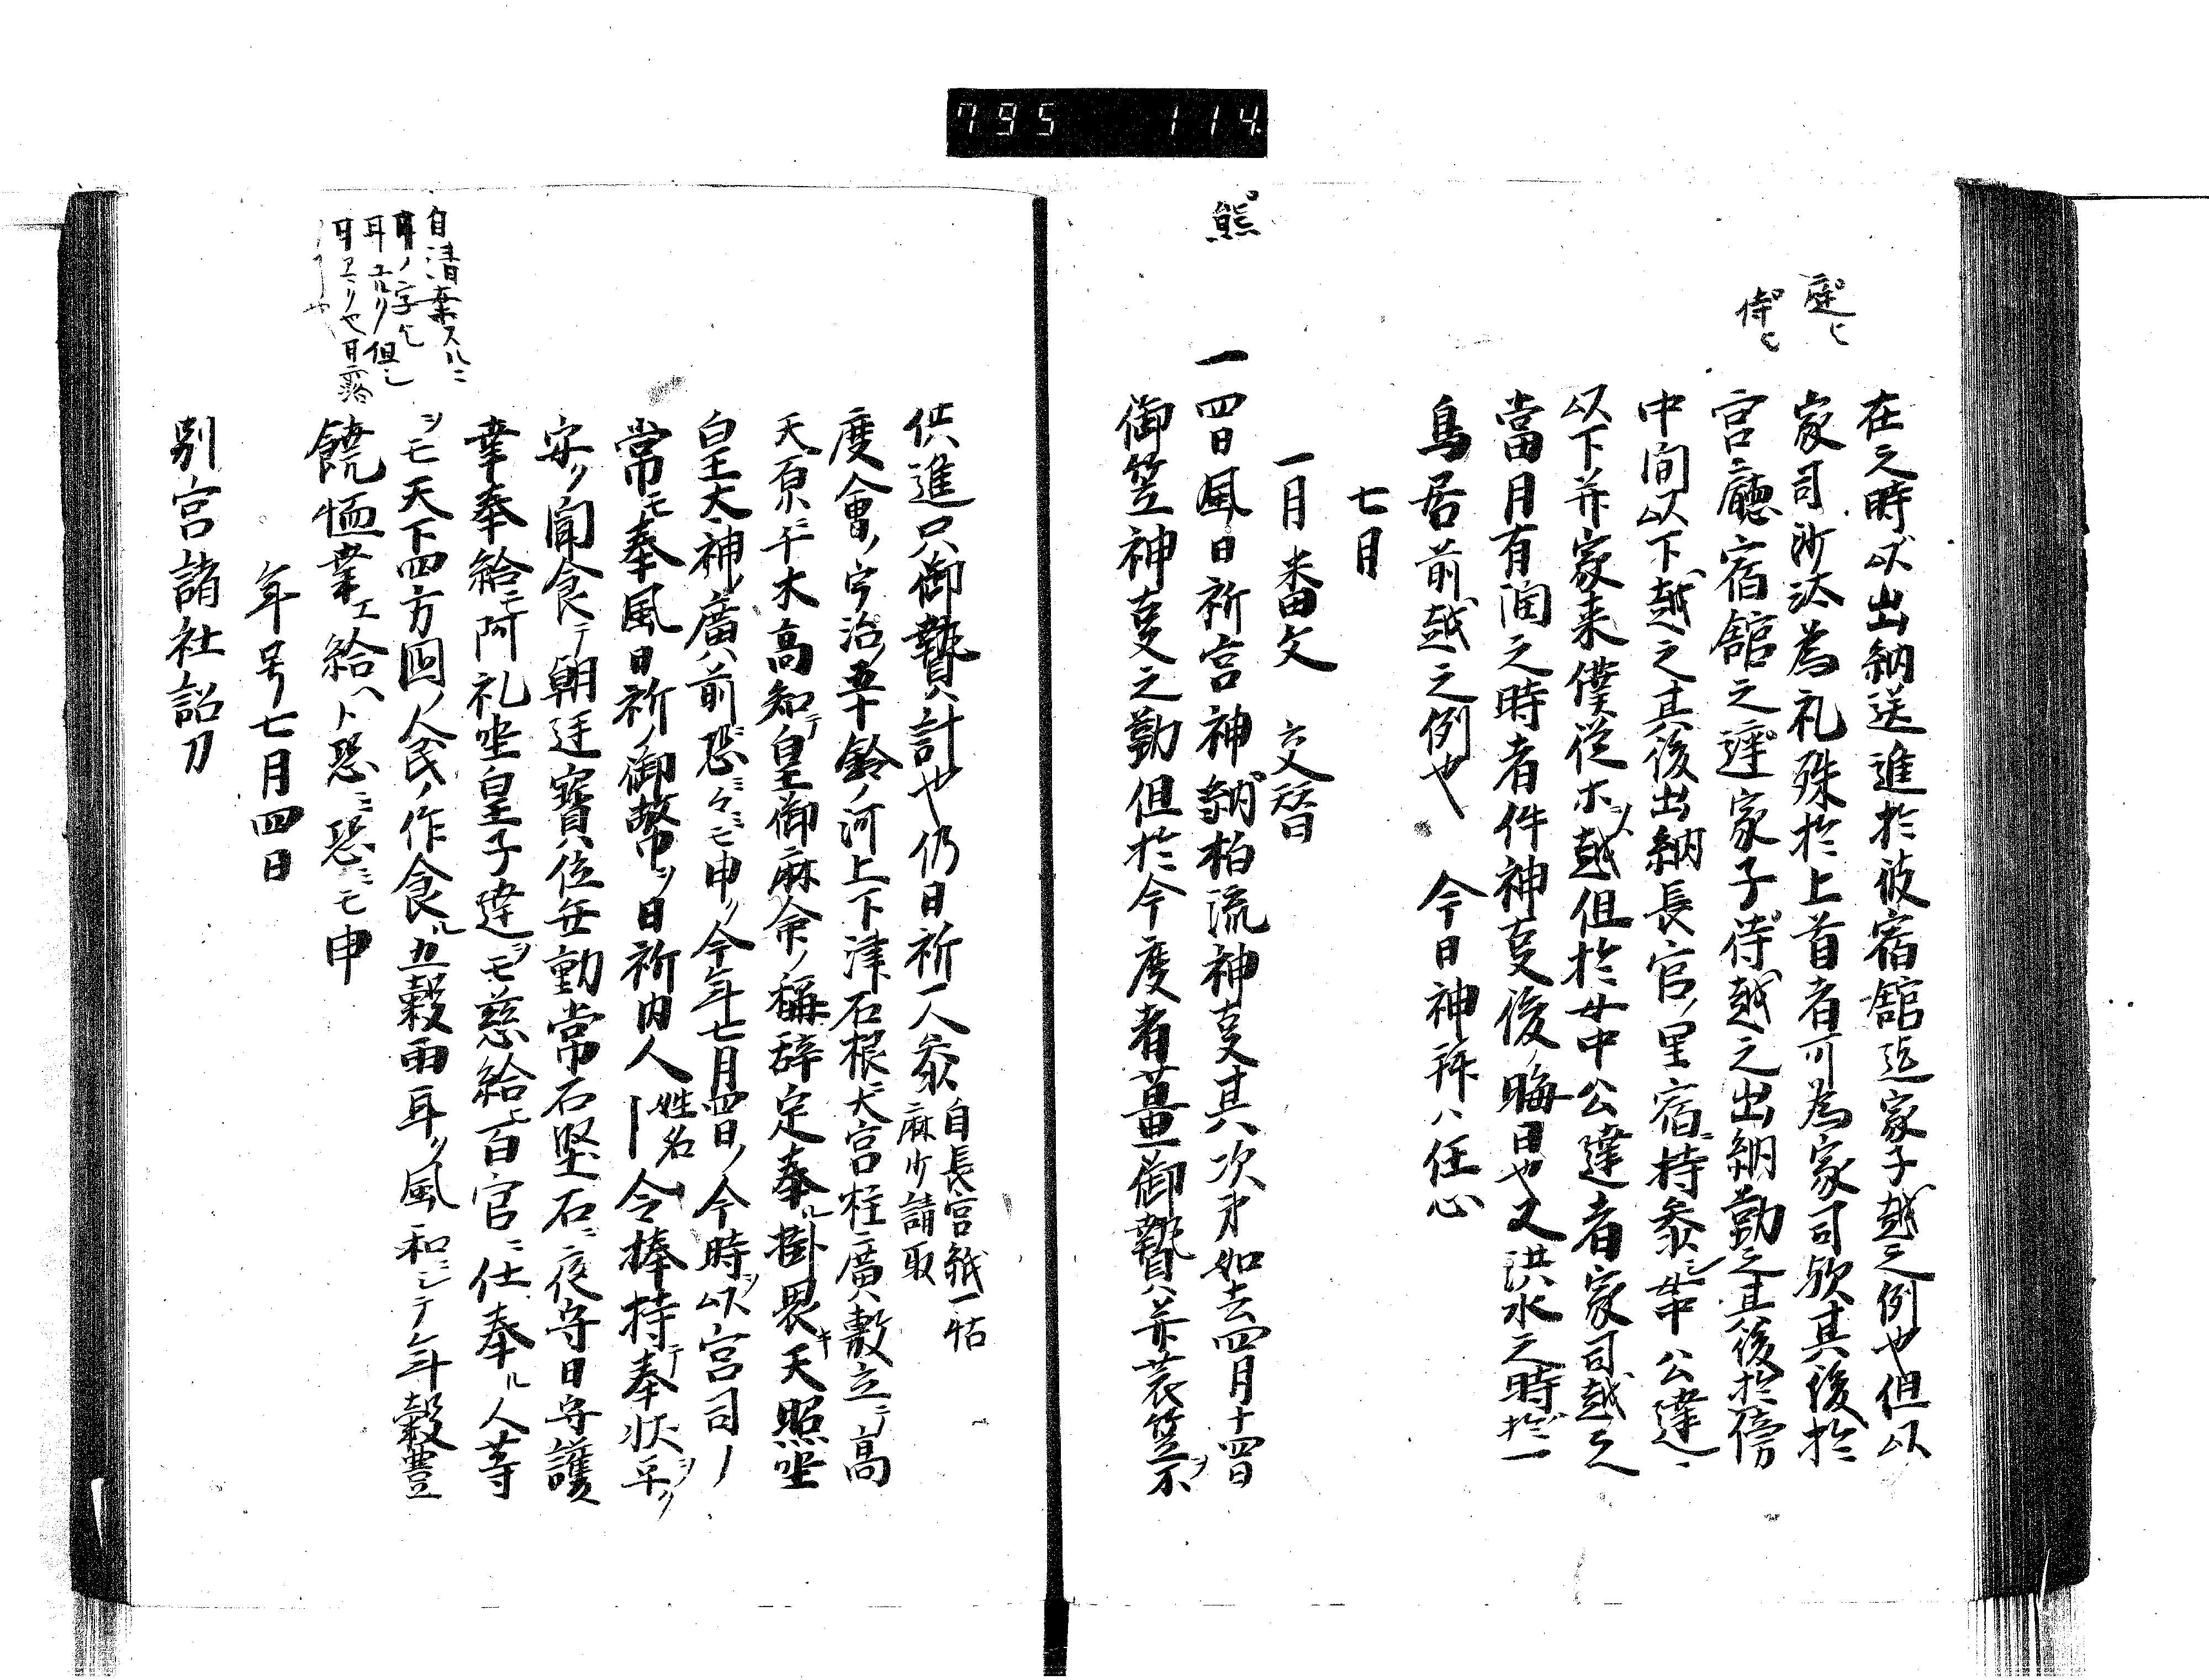 795 114
庭ヒ
侍ヒ
在之時以出納送進於彼宿舘迄家子越之例也但以
家司沙汰為礼殊於上首者可為家司欤其後於
宮廳宿舘之遲家子侍越之出納勤之其後於傍
中間以下越之其後出納長官ノ里宿持参女中公達ニ
以下并家来僕従ホ越但於女中公達者家司越之
當月有潤之時者件神事後ノ晦日也又洪水之時於一
鳥居前越之例也 今日神拜ハ任心
七月
一月番文 交替
熊
一四日風日祈宮神納柏流神事其次第如去四月十四日
御笠神事之勤但於今度者薑御贄并蓑笠ヲ不
供進只御贄計也仍日祈一人参 自長官紙一帖
麻少請取
度會ノ宇治五十鈴ノ河上下津石根大宮柱廣敷立テ高
天原千木高知テ皇御麻命ノ稱辞定奉ル掛畏キ天照坐
皇大神ノ廣前恐ミ々ミモ申ク今年七月四日ノ今時以宮司ノ
常モ奉風日祈ノ御幣ヲ日祈内人 姓名 令捧持テ奉状平ク
安ク聞食テ朝廷寳位無動常石堅石ニ夜守日守護
幸奉給ヒ阿礼坐皇子達ヲモ慈給ヒ百官ニ仕奉ル人等
ヲモ天下四方國ノ人民ノ作食ル五穀雨耳ク風和ニシテ年穀豊
饒恤業エ給ヘト恐ミ恐ミモ申
年号七月四日
別宮諸社詔刀
自清案スルニ
耳ノ字ヒ